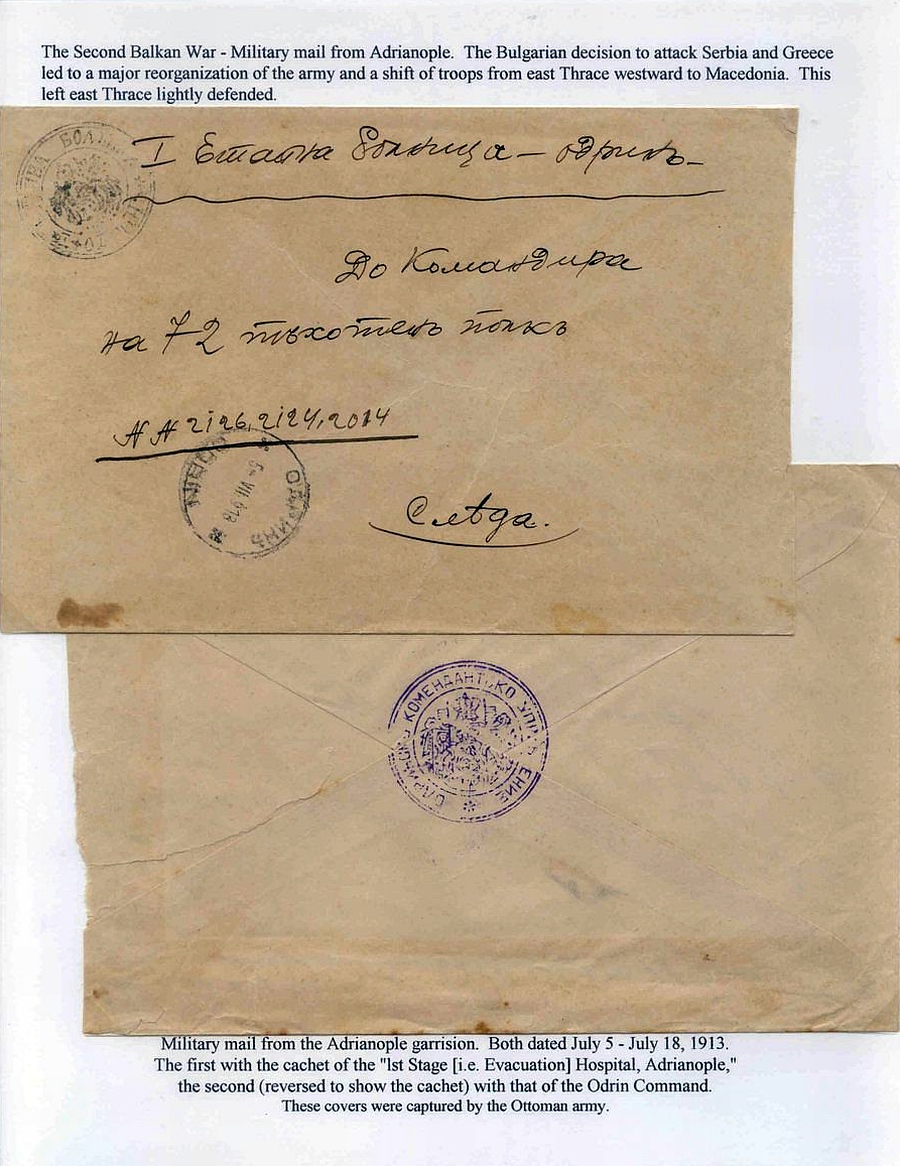 The Second Balkan War - Military mail from Adrianople. The Bulgarian decision to attack Serbia and Greece
led to a major reorganization of the army and a shift of troops from east Thrace westward to Macedonia. This
left east Thrace lightly defended.
I Етапна болница — Одринъ —
До Командира
на 72 пѣхотенъ полкъ
№ № 2126, 2124, 2014
5 VII 913
ОДРИНЪ
Слѣда.
КОМЕНДАНТСКО
Military mail from the Adrianople garrision. Both dated July 5 - July 18, 1913.
The first with the cachet of the "lst Stage [i.e. Evacuation] Hospital, Adrianople,"
the second (reversed to show the cachet) with that of the Odrin Command.
These covers were captured by the Ottoman army.